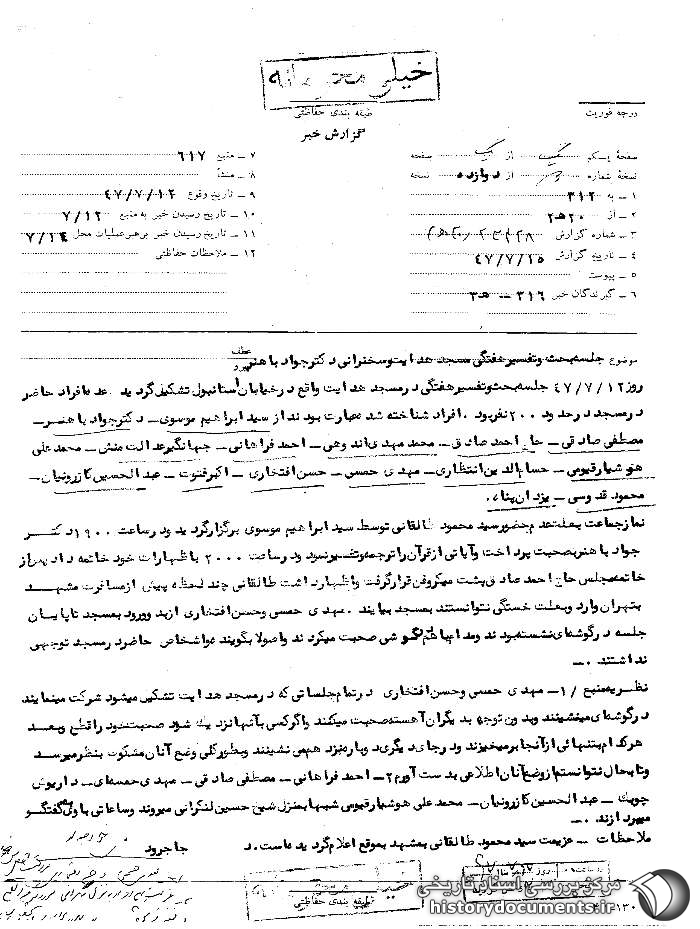 خیلی محرمانه
طبقه بندی حفاظتی
درجه فوریت
گزارش خبر
صفحهٔ یکم از صفحه
نسخهٔ شماره از دوازده نسخه
۱ ـ به ۳۱۲
۲ ـ از ۲۰ هـ ۲
۳ ـ شماره گزارش
۴ ـ تاریخ گزارش ۴۷/۷/۱۵
۵ ـ پیوست
۶ ـ گیرندگان خبر ۳۱۶ ــ
۷ ـ منبع ۶۱۷
۸ ـ منشأ
۹ ـ تاریخ وقوع ۴۷/۷/۱۲
۱۰ ـ تاریخ رسیدن خبر به منبع ۷/۱۲
۱۱ ـ تاریخ رسیدن خبر برهبر عملیات محل ۷/۱۴
۱۲ ـ ملاحظات حفاظتی
موضوع جلسه بحث و تفسیر هفتگی مسجد هدایت و سخنرانی دکتر جواد با هنر
عطف
روز ۴۷/۷/۱۲ جلسه بحث و تفسیر هفتگی در مسجد هدایت واقع در خیابان استانبول تشکیل گردید. عده افراد حاضر
در مسجد در حدود ۲۰۰ نفر بود. افراد شناخته شده عبارت بودند از سید ابراهیم موسوی ـ دکتر جواد با هنر ـ
مصطفی صادقی ـ حاج احمد صادقی ـ محمد مهدی اندوهی ـ احمد فراهانی ـ جهانگیر عدالت منش ـ محمد علی
هوشیار قیومی ـ حسام الدین انتظاری ـ مهدی حمسی ـ حسن افتخاری ـ اکبر فتوت ـ عبدالحسین کازرونیان ـ
محمود قدوسی ـ یزدان پناه.
نماز جماعت بعلت عدم حضور سید محمود طالقانی توسط سید ابراهیم موسوی برگزار گردید و در ساعت ۱۹۰۰ دکتر
جواد با هنر بصحبت پرداخت و آیاتی از قرآن را ترجمه و تفسیر نمود و در ساعت ۲۰۰۰ با ظهارات خود خاتمه داد پس از
خاتمه مجلس حاج احمد صادقی پشت میکروفن قرار گرفت و اظهار داشت طالقانی چند لحظه پیش از مسافرت مشهد
بتهران وارد و بعلت خستگی نتوانستند بمسجد بیایند. مهدی حمسی و حسن افتخاری از بدو ورود بمسجد تا پایان
جلسه در گوشه‌ای نشسته بودند و مدام با هم در گوشی صحبت میکردند و اصولا بگویند و اشخاص حاضر در مسجد توجهی
نداشتند.ـ
نظریه منبع /۱ـ مهدی حمسی و حسن افتخاری در تمام جلساتی که در مسجد هدایت تشکیل میشود شرکت مینمایند
در گوشه‌ای مینشینند و بدون توجه بدیگران آهسته صحبت میکنند و اگر کسی بآنها نزدیک شود صحبت خود را قطع و بعد
هر کدام بتنهائی از آنجا بر میخیزند و در جای دیگری دوباره نزد هم می نشینند و بطور کلی وضع آنان مشکوک بنظر میرسد
و تا بحال نتوانستم از وضع آنان اطلاعی بدست آورم ۲ـ احمد فراهانی ـ مصطفی صادقی ـ مهدی حمسه‌ای ـ داریوش
چوبک ـ عبدالحسین کازرونیان ـ محمد علی هوشیار قیومی شبها بمنزل شیخ حسین لنکرانی میروند و ساعاتی با وی بگفتگو
میپردازند.ـ
ملاحظات ـ عزیمت سید محمود طالقانی بمشهد بموقع اعلام گردیده است. د
جاجرود
خیلی محرمانه
طبقه بندی حفاظتی
مرکز بررسی اسناد تاریخی
historydocuments.ir